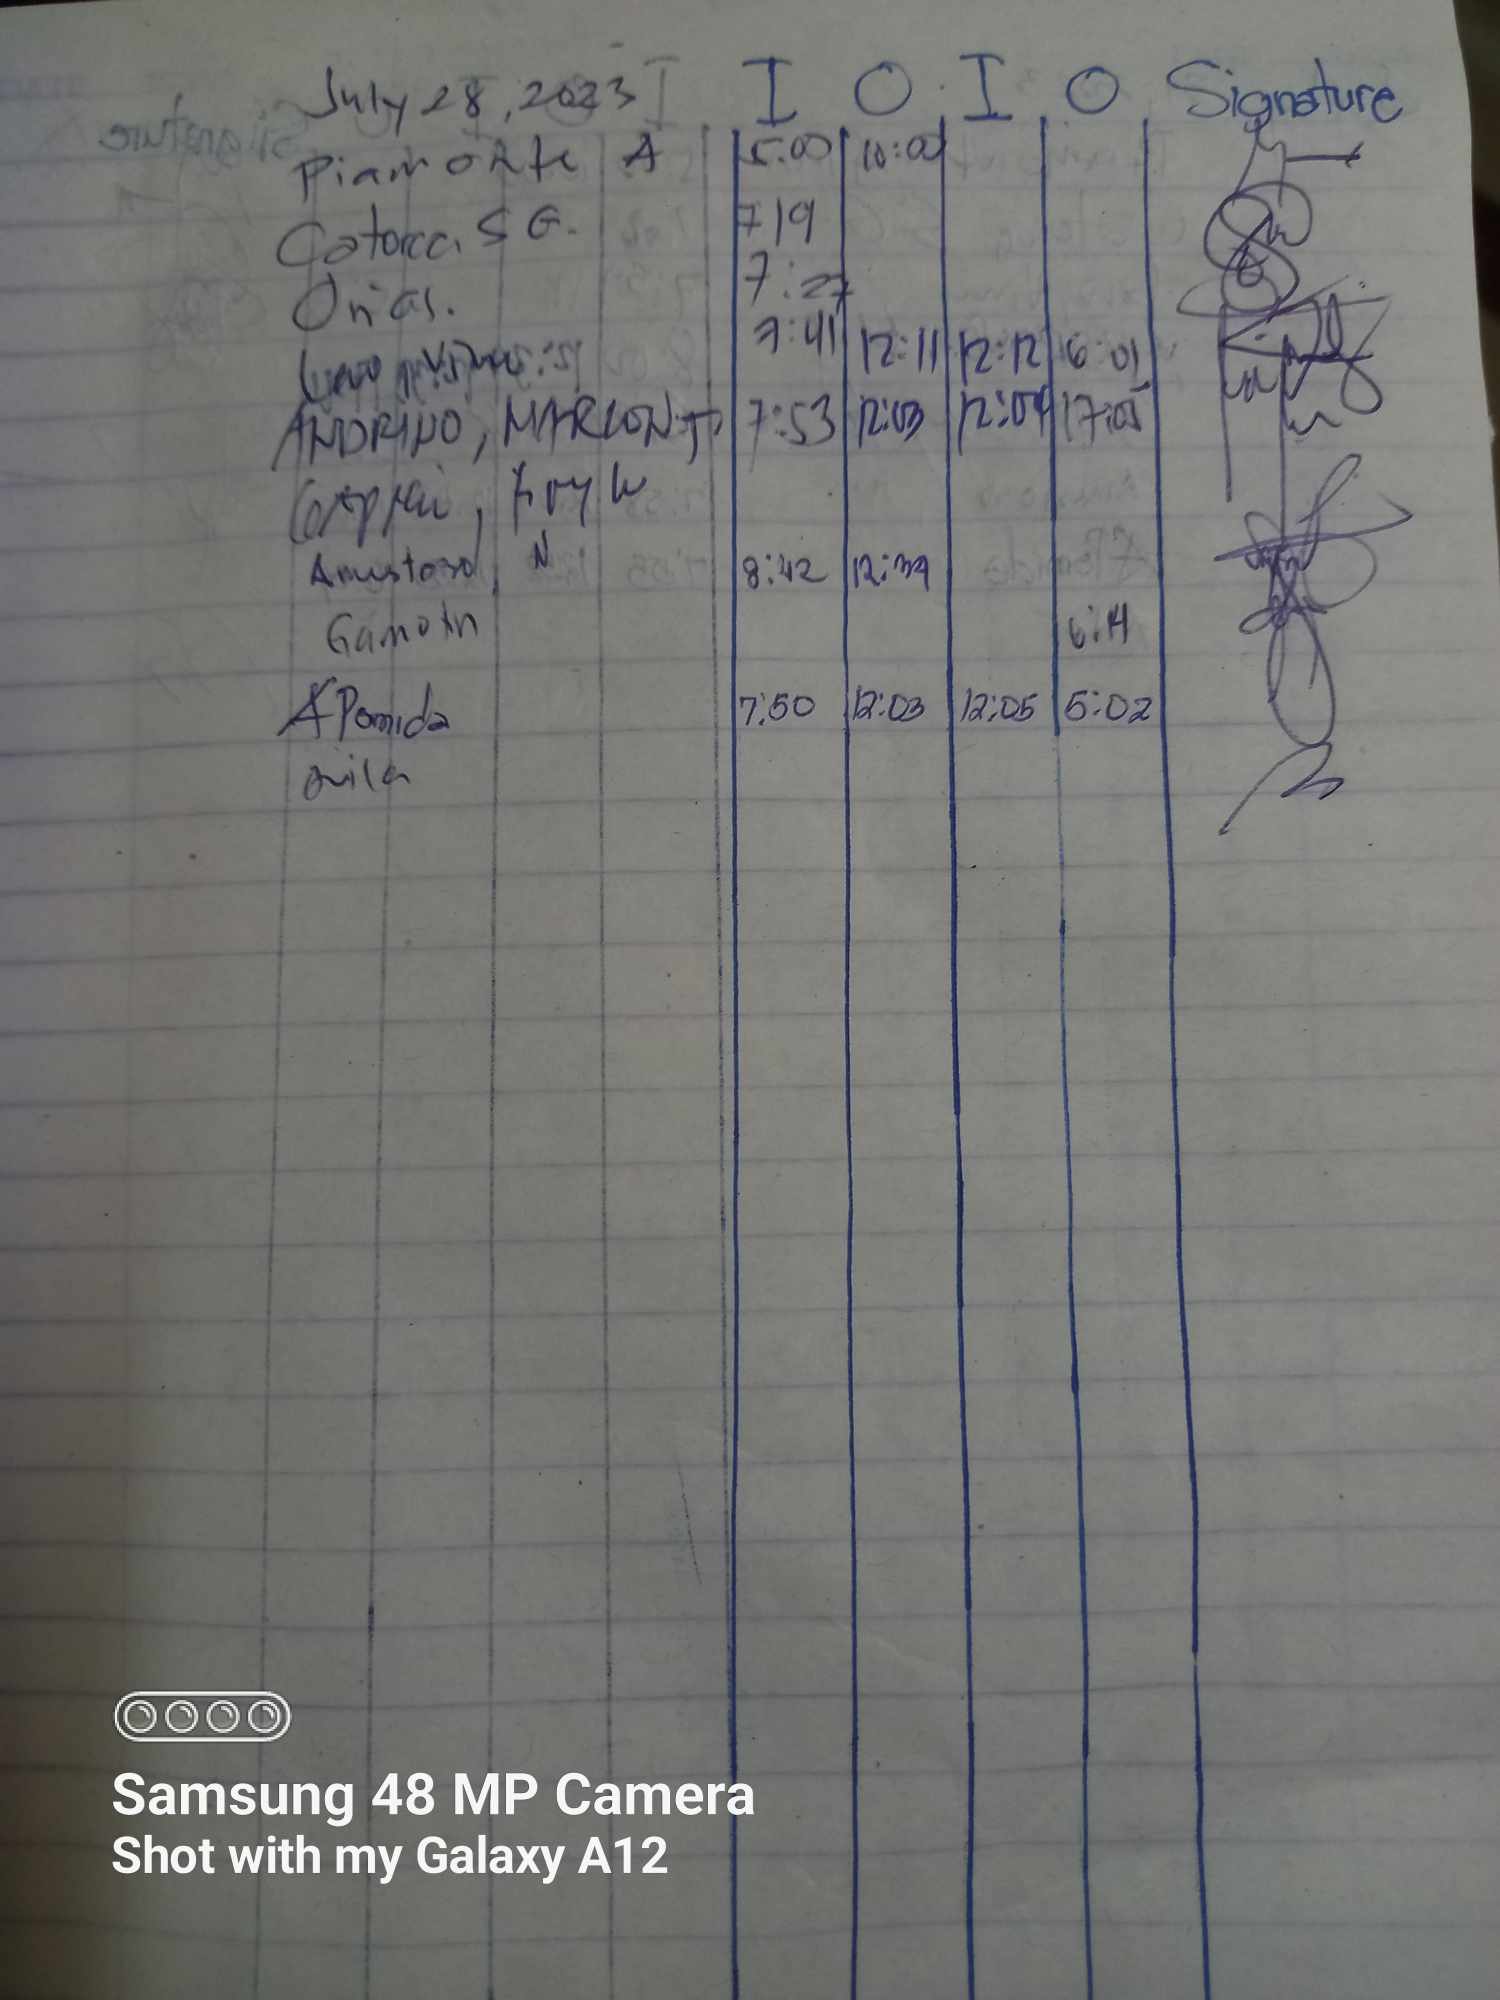 July 28, 2023 I O I O Signature
Piamonte A 5:00 10:00
Catorce. S G. 719
Onias. 7:27
7:41 12:11 12:12 6:01
ANDRINO, MARLON J 7:53 12:03 12:04 17:05
Amistoso, N 8:42 12:39
Gamotin 6:14
APomida 7:50 12:03 12:05 5:02
avila
Samsung 48 MP Camera
Shot with my Galaxy A12